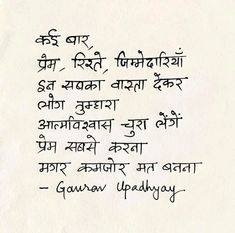 कई बार,
प्रेम, रिश्ते, जिम्मेदारियाँ
इन सबका वास्ता देकर
लोग तुम्हारा
आत्मविश्वास चुरा लेंगें
प्रेम सबसे करना
मगर कमजोर मत बनना
- Gaurav Upadhyay